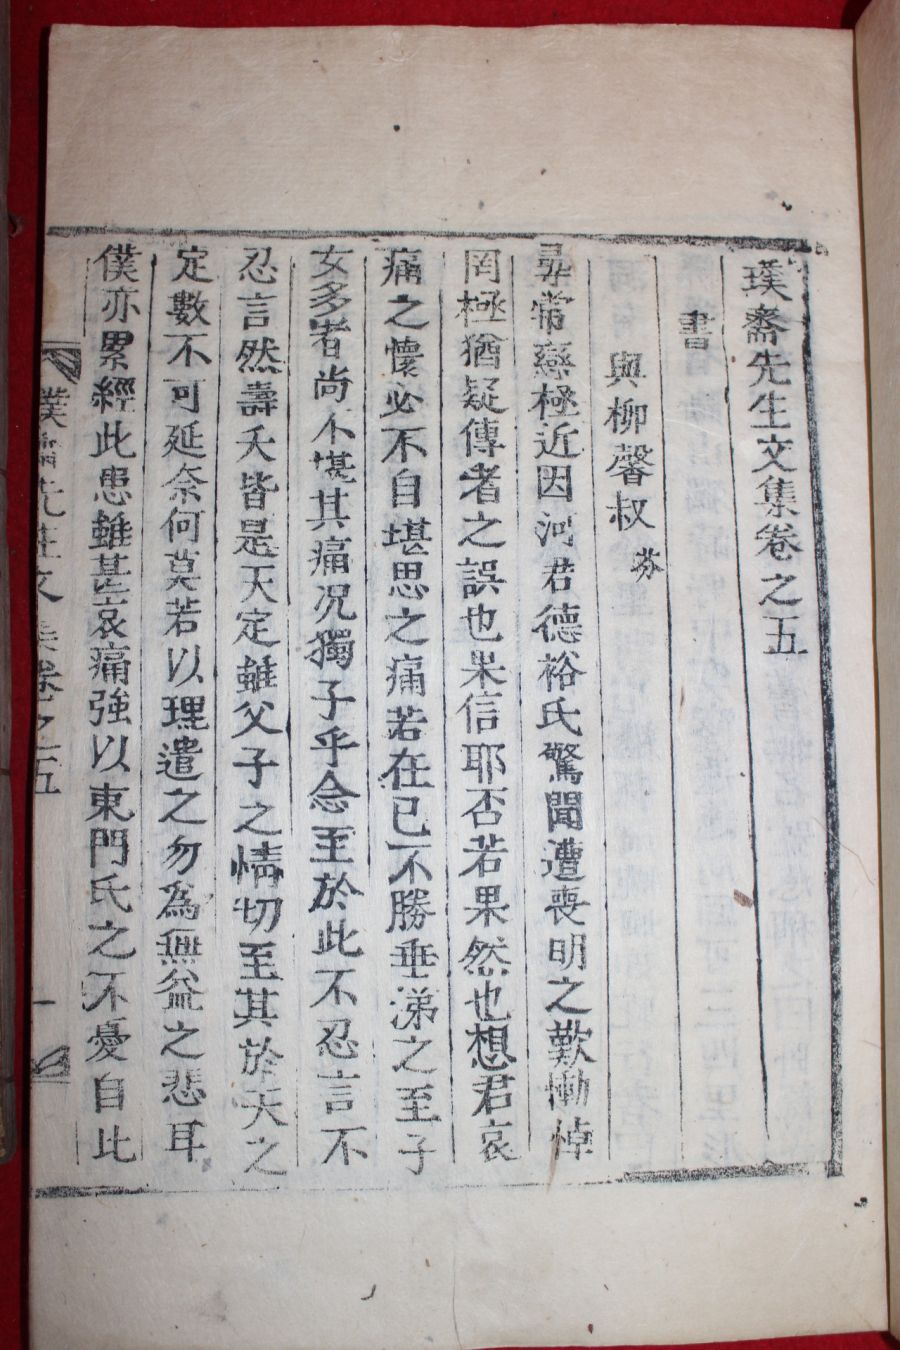 璞齋先生文集卷之五
書
與柳馨叔 芬
尋常戀極近因河君德裕氏驚聞遭喪明之歎慟悼
罔極猶疑傳者之誤也果信耶否若果然也想君哀
痛之懷必不自堪思之痛若在已不勝垂涕之至子
女多者尚不堪其痛况獨子乎念至於此不忍言不
忍言然壽夭皆是天定雖父子之情切至其於天之
定數不可延奈何莫若以理遣之勿爲無益之悲耳
僕亦累經此患雖甚哀痛強以東門氏之不憂自此
璞齋先生文集卷之五
一